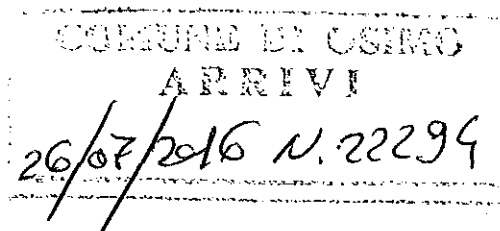 COMUNE DI OSIMO
ARRIVI
26/07/2016 N. 22294